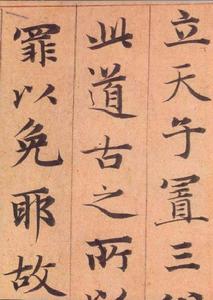 立天子置三
此道古之所以
罪以免耶故